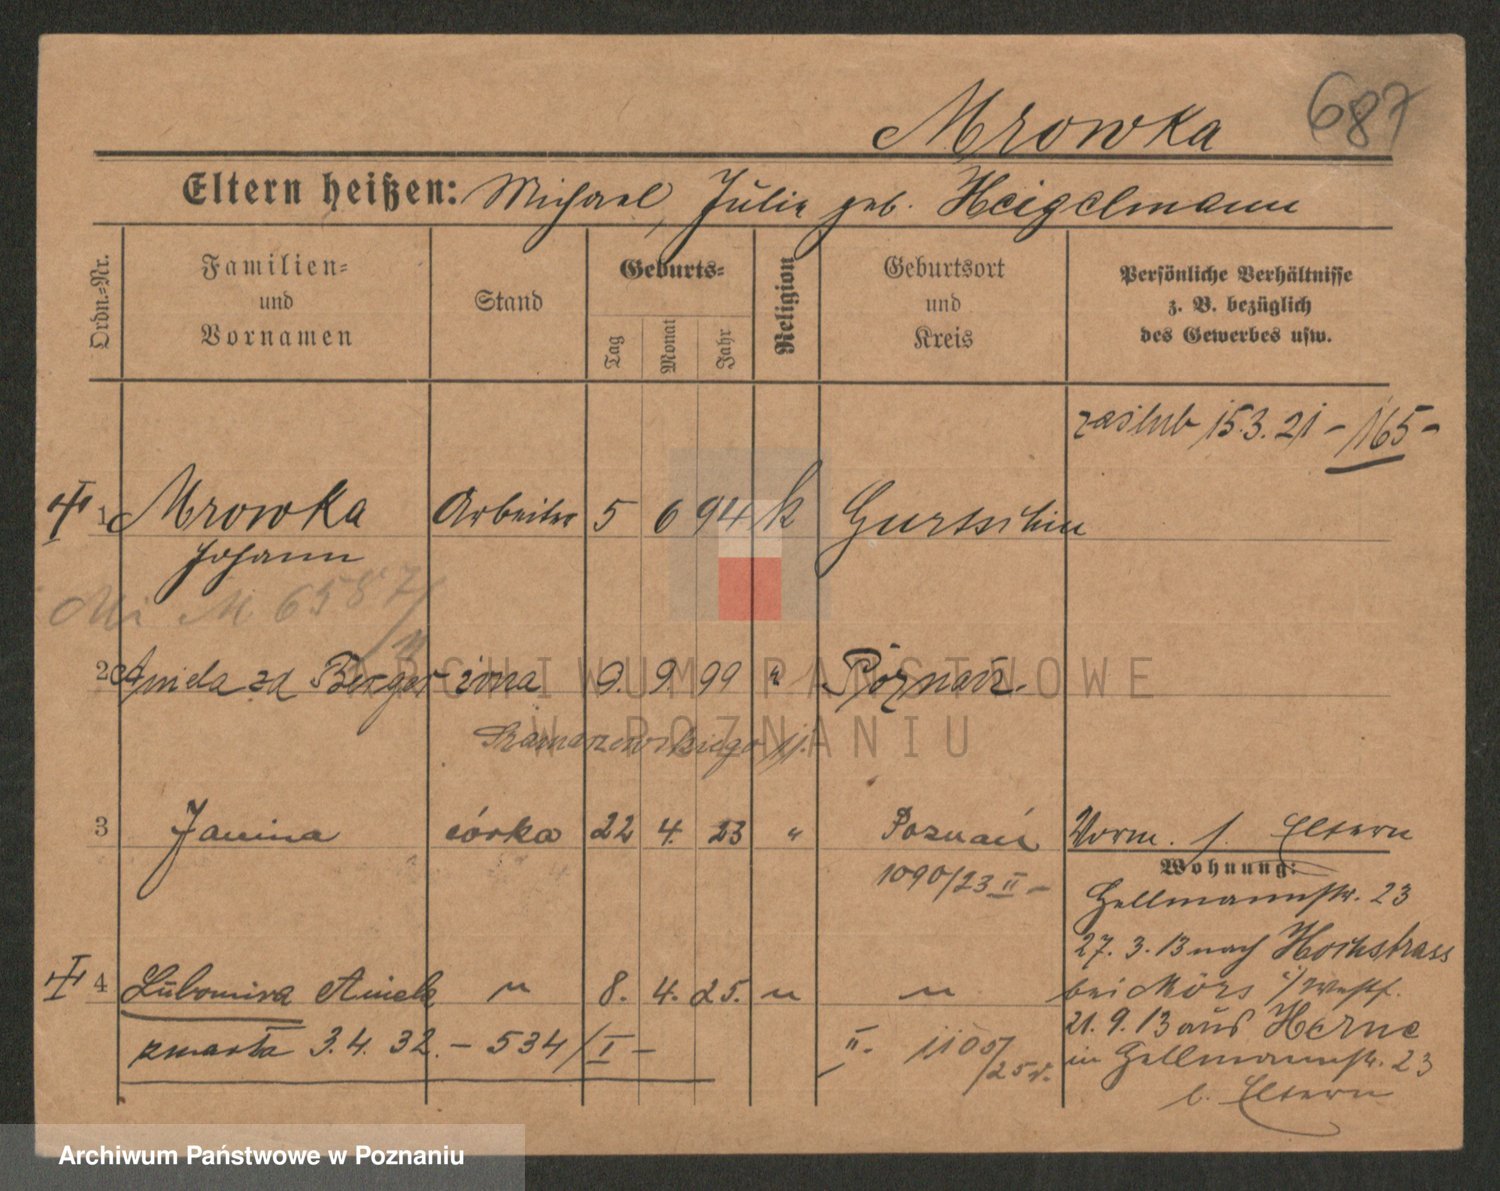 Mrowka
687
Eltern heißen: Michael, Julie geb. Heigelmann
Ordn.=Nr.
Familien=
und
Vornamen
Stand
Geburts=
Tag
Monat
Jahr
Religion
Geburtsort
und
Kreis
Persönliche Verhältnisse
z. B. bezüglich
des Gewerbes usw.
zaślub 15.3.21 - 165 -
1 Mrowka Arbeiter 5 6 94 k Gurtschin
Johann
M 6587/
2 Aniela zd Berger żona 9. 9. 99 " Poznań.
3 Janina córka 22 4. 23 " Poznań
1090/23 II -
Vorm. f. Eltern
Wohnung:
Hellmannstr. 23
27. 3. 13 nach Hochstrass
bei Mörs i/Westf.
21. 9. 13 aus Herne
in Hellmannstr. 23
b. Eltern
4 Lubomira Aniela " 8. 4. 25. " "
zmarła 3.4.32. - 534/I -
II. 1105/25
ARCHIWUM PAŃSTWOWE
W POZNANIU
Archiwum Państwowe w Poznaniu